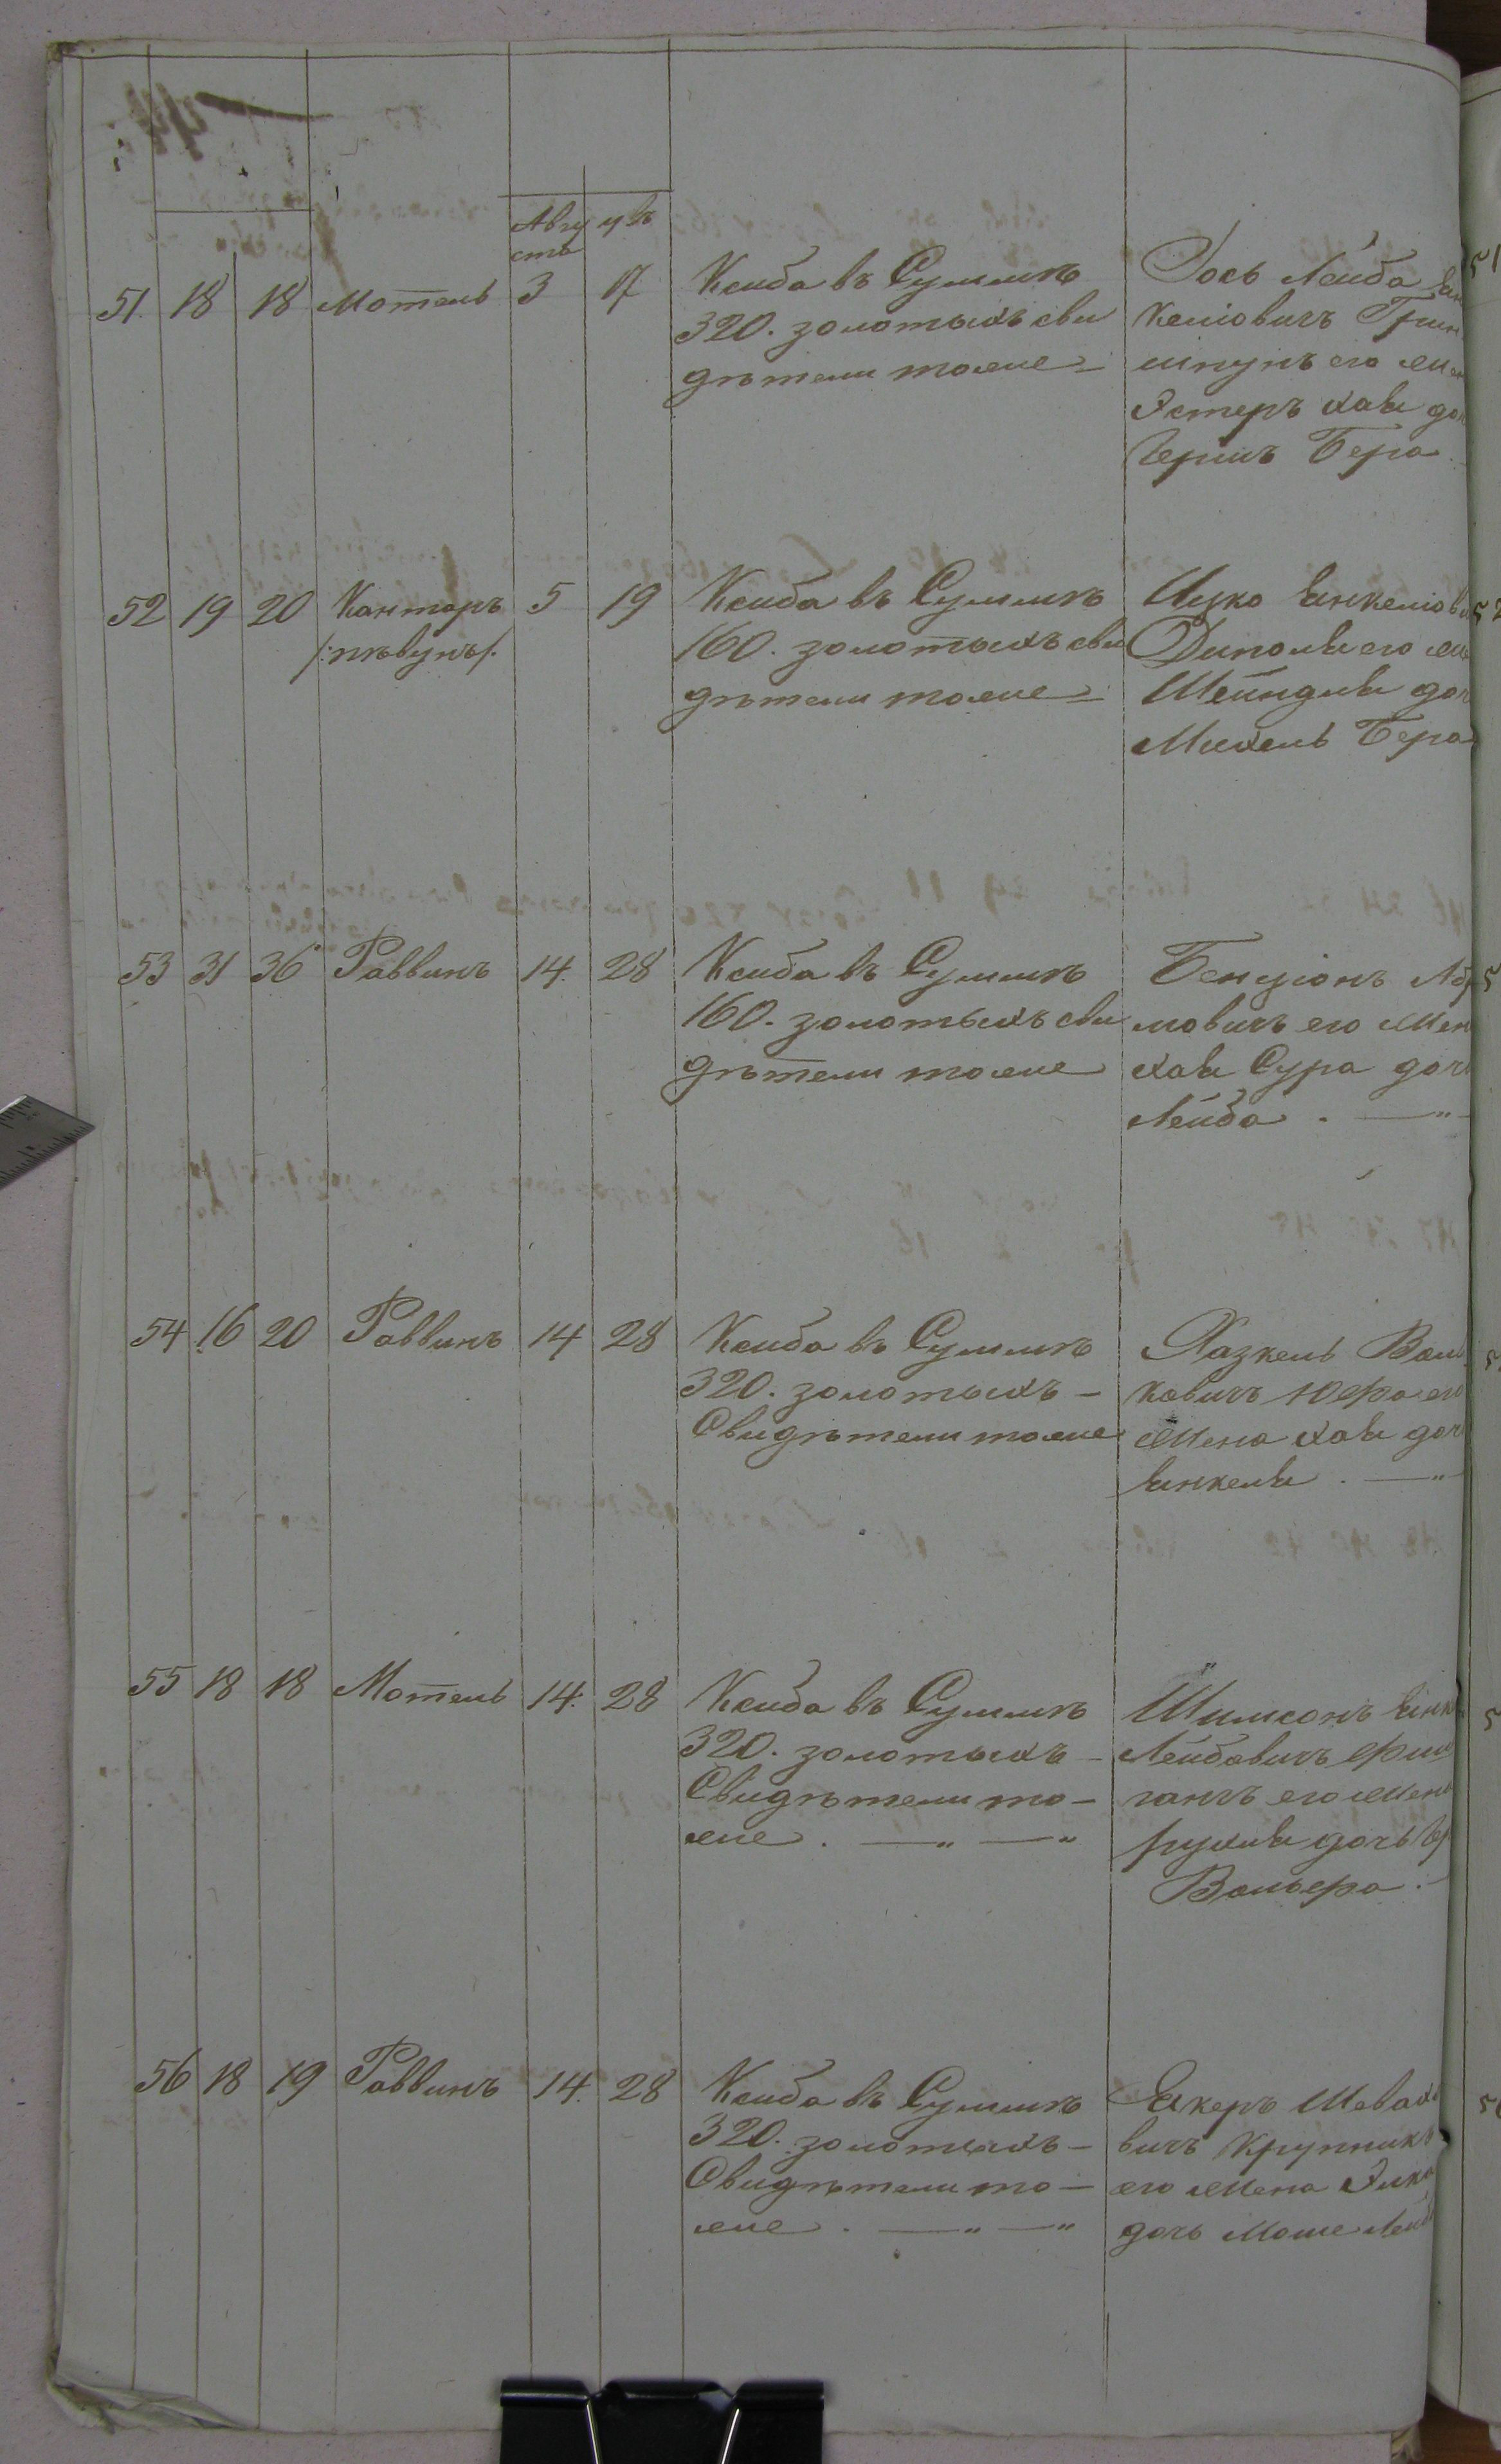 Авгу увъ
ста
51. 18 18 Мотель 3 17 Ксиба въ Суммѣ
320. золотыхъ сви
дѣтели тоже
Іось Лейба Ян
келіовичъ Грин
шпунъ его же
Эстеръ хая до
Герша Бера
52 19 20 Канторъ 5 19 Ксиба въ Суммѣ
/:пѣвунъ/.
160. золотыхъ сви
дѣтели тоже
Ицко Янкеліови
его же
Шейндля доч
Михель Бера
53 31 36 Раввинъ 14. 28 Ксиба въ Суммѣ
160. золотыхъ сви
дѣтели тоже
Бенціонъ Аб
мовичъ его жен
хая Сура доч
Лейба . —"—
54 16 20 Раввинъ 14 28 Ксиба въ Суммѣ
320. золотыхъ —
Свидѣтели тоже
Хазкель Воль
ковичъ Юфа его
жена хая доч
Янкеля . —"—
55 18 18 Мотель 14. 28 Ксиба въ Суммѣ
320. золотыхъ —
Свидѣтели то—
же . —"—"
Шимсонъ Янк
Лейбовичъ Фин
ганъ его жен
рухля дочь Гер
Вольфа .
56 18 19 Раввинъ 14. 28 Ксиба въ Суммѣ
320. золотыхъ —
Свидѣтели то —
же . —"—"
Якеръ Шевахо
вичъ Крупникъ
его жена Элка
дочь Моше Лейб